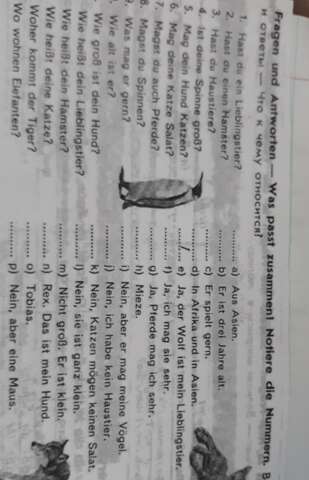 Fragen und Antworten — Was passt zusammen? Notiere die Nummern. В
и ответы — что к чему относится?
1. Hast du ein Lieblingstier?
2. Hast du einen Hamster?
3. Hast du Haustiere?
4. Ist deine Spinne groß?
5. Mag dein Hund Katzen?
6. Mag deine Katze Salat?
7. Magst du auch Pferde?
8. Magst du Spinnen?
9. Was mag er gern?
Wie alt ist er?
Wie groß ist dein Hund?
Wie heißt dein Lieblingstier?
Wie heißt dein Hamster?
Wie heißt deine Katze?
Woher kommt der Tiger?
Wo wohnen Elefanten?
.......... a) Aus Asien.
.......... b) Er ist drei Jahre alt.
.......... c) Er spielt gern.
.......... d) In Afrika und in Asien.
....1.... e) Ja, der Wolf ist mein Lieblingstier.
.......... f) Ja, ich mag sie sehr.
.......... g) Ja, Pferde mag ich sehr.
.......... h) Mieze.
.......... i) Nein, aber er mag meine Vögel.
.......... j) Nein, ich habe kein Haustier.
.......... k) Nein, Katzen mögen keinen Salat.
.......... l) Nein, sie ist ganz klein.
.......... m) Nicht groß. Er ist klein.
.......... n) Rex. Das ist mein Hund.
.......... o) Tobias.
.......... p) Nein, aber eine Maus.